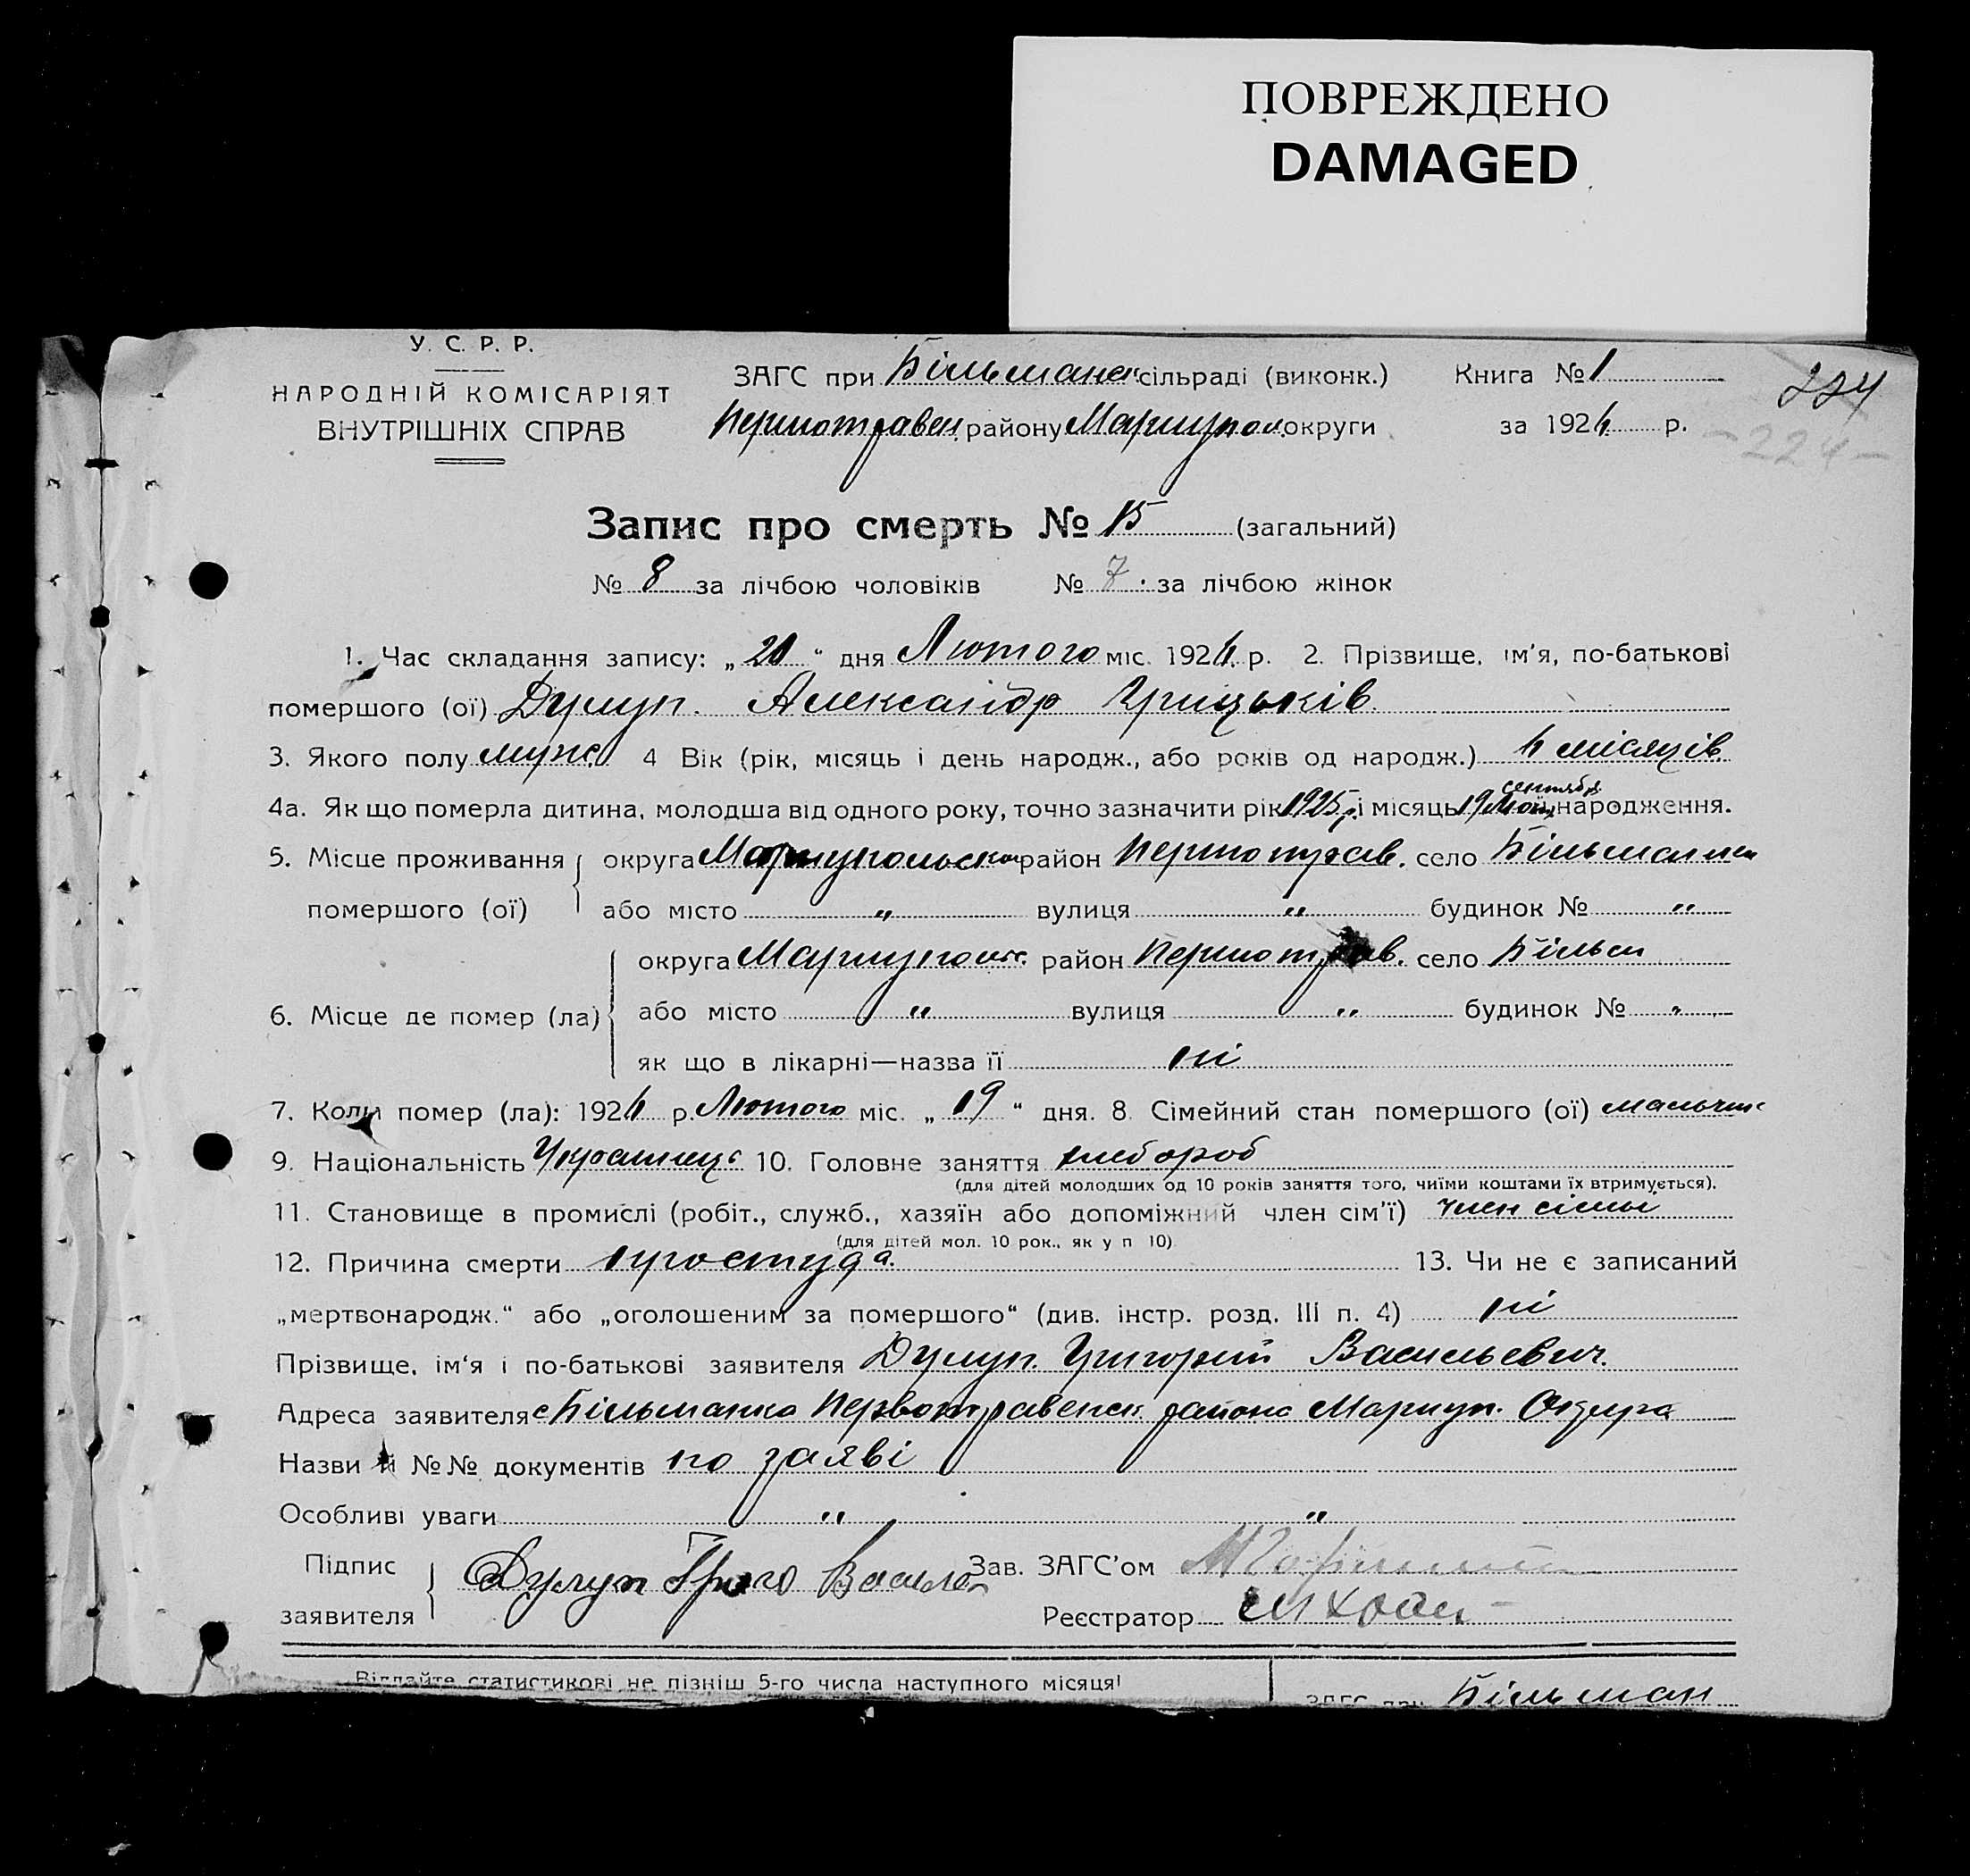 ПОВРЕЖДЕНО
DAMAGED
У. С. Р. Р.
НАРОДНІЙ КОМІСАРІЯТ
ВНУТРІШНІХ СПРАВ
ЗАГС при Більманск сільраді (виконк.) Книга № 1
Першотравен. району Маріупол. округи за 1926 р.
224
-224-
Запис про смерть № 15 (загальний)
№ 8 за лічбою чоловіків № 7 за лічбою жінок
1. Час складання запису: „20“ дня Лютого міс. 1926 р. 2. Прізвище, ім'я, по-батькові
помершого (ої) Дулуп. Александр Грицьків
3. Якого полу муж. 4 Вік (рік, місяць і день народж., або років од народж.) 4 місяців.
4а. Як що померла дитина, молодша від одного року, точно зазначити рік 1925 р. і місяць 19 сентябр. народження.
5. Місце проживання округа Маріупольска район Першотрав. село Більманка
помершого (ої) або місто „ вулиця „ будинок № „
округа Маріупольс. район Першотрав. село Більм
6. Місце де помер (ла) або місто „ вулиця „ будинок № „
як що в лікарні—назва її ні
7. Коли помер (ла): 1926 р. Лютого міс. „19“ дня. 8. Сімейний стан помершого (ої)
9. Національність Украинец 10. Головне заняття хлібороб
(для дітей молодших од 10 років заняття того, чиїми коштами їх втримується).
11. Становище в промислі (робіт., служб., хазяїн або допоміжний член сім'ї) член сімьі
(для дітей мол. 10 рок., як у п 10)
12. Причина смерти простуда. 13. Чи не є записаний
„мертвонародж.“ або „оголошеним за помершого“ (див. інстр. розд. III п. 4) ні
Прізвище, ім'я і по-батькові заявителя Дулуп Григорий Васильевич.
Адреса заявителя с Більманка Первотравенск района Мариуп. Округа
Назви й №№ документів по заяві
Особливі уваги „ „
Підпис
заявителя Дулуп Зав. ЗАГС'ом
Реєстратор
Віддайте статистикові не пізніш 5-го числа наступного місяця!
ЗАГС при Більман